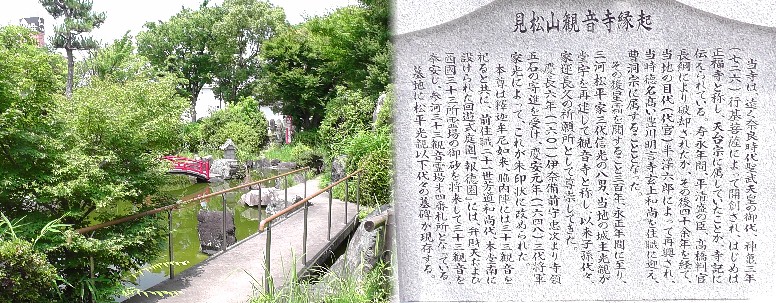 見松山観音寺縁起
当寺は、遠く奈良時代聖武天皇の御代、神亀三年
(七二六)行基菩薩によって開創され、はじめは
正福寺と称し、天台宗に属していたことが、寺記に
伝えられている。寿永年間、平清盛の臣、高橋判官
長綱により焼却されたが、その後四十余年を経て、
当地の目代(代官)平洋六郎によって再興され、
当時徳名高い豊川明言寺を住職に迎え、
曹洞宗に属することとなった。
その後星霜を閲すること三百年、永正年間に至り、
三河松平家三代信光の八男、当地の城主光親が
堂宇を再建して観音寺と称し、以来子孫代々、
家運長久の祈願所として尊崇してきた。
慶長六年(一六〇一)伊奈備前守忠次より寺領
五石の寄進を受け、慶安元年(一六四八)三代将軍
家光によって、これが朱印状に改められた。
本尊は釋迦牟尼如来、脇内陣には三十三観音を
祀ると共に、前住職二十一世芳道和尚代、本堂南に
設けられた回遊式庭園「報徳園」には、弁財天および
西国三十三所霊場の御砂を将来して三十三観音を
奉安し、参河三十三観音霊場第四番札所となっている。
墓地に松平光親以下代々の墓碑が現存する。